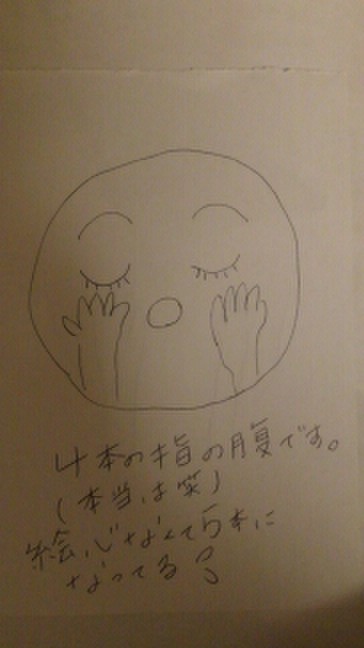 4本の指の腹です。
(本当は笑)
絵、じゃなくて5本に
なってる?